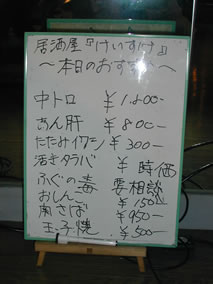 居酒屋『けいすけ』
～本日のおすすめ～
中トロ ￥1,200-
あん肝 ￥800-
たたみイワシ ￥300-
活きタラバ ￥時価
ふぐの毒 要相談
おしんこ ￥150-
関さば ￥950-
玉子焼 ￥500-